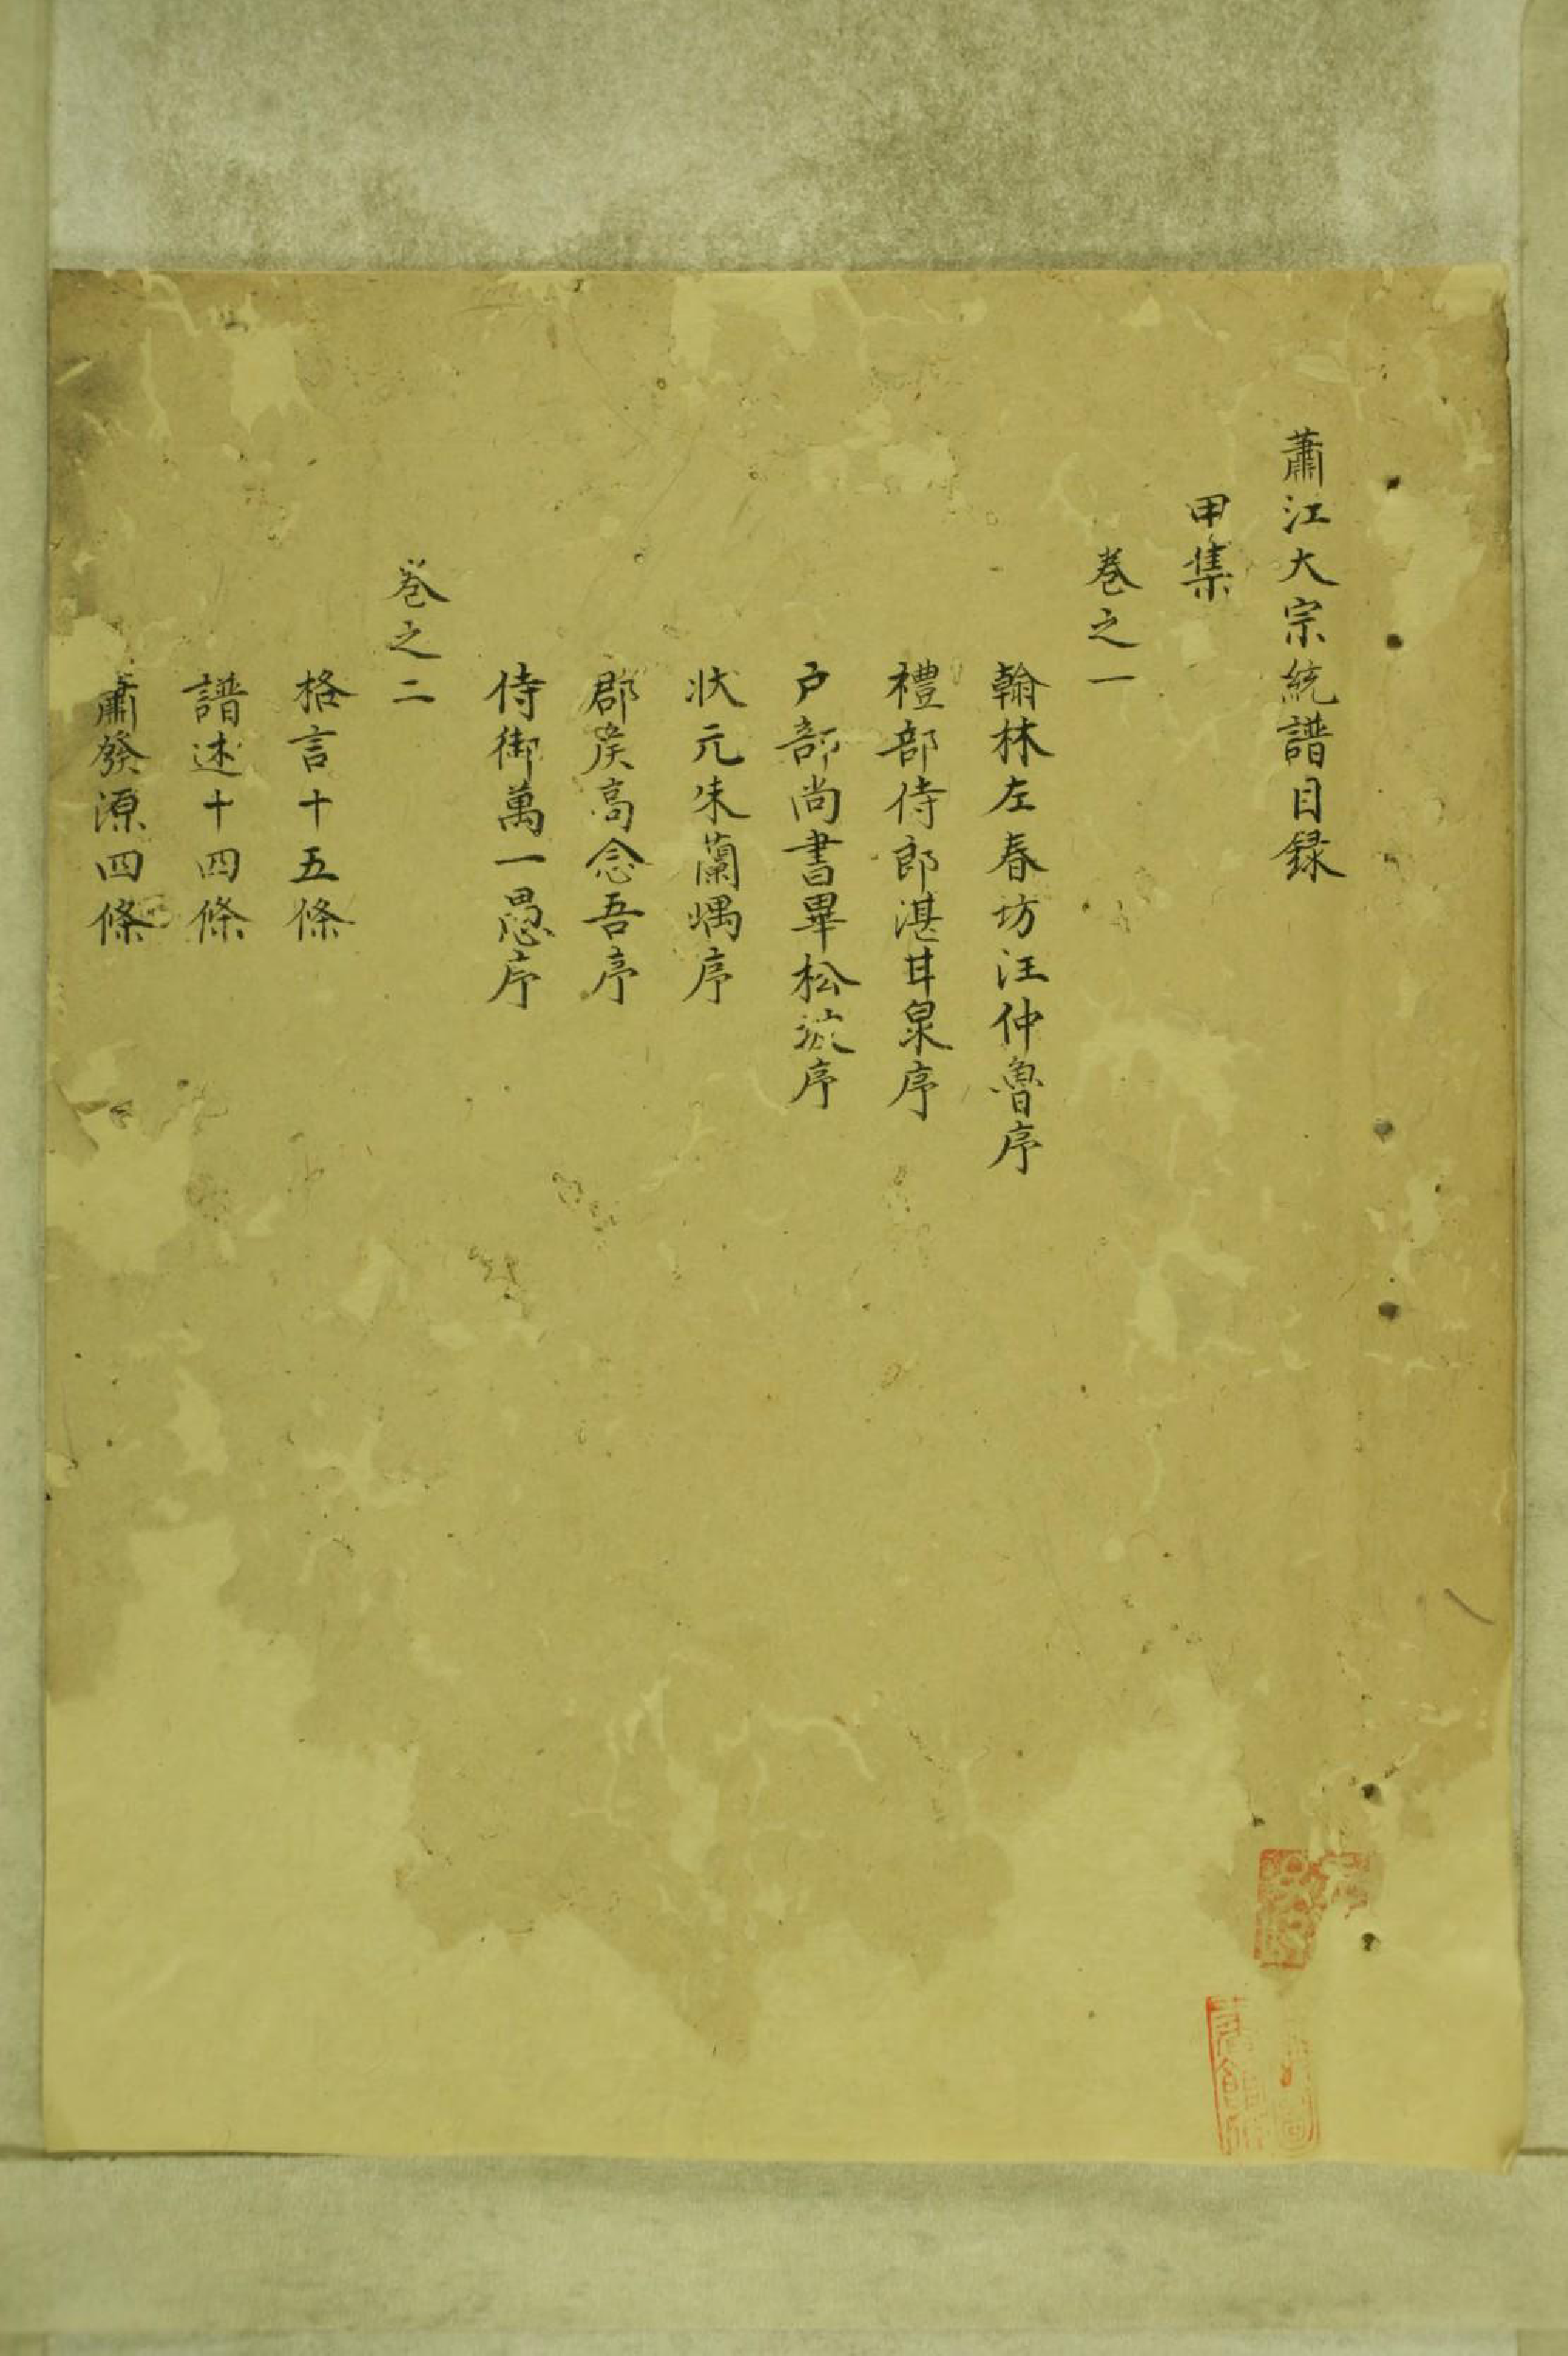 蕭江大宗統譜目録
甲集
卷之一
翰林左春坊汪仲魯序
禮部侍郎湛甘泉序
戸部尚書畢松坡序
狀元朱蘭嵎序
郡矦高念吾序
侍御萬一愚序
卷之二
格言十五條
譜述十四條
蕭發源四條